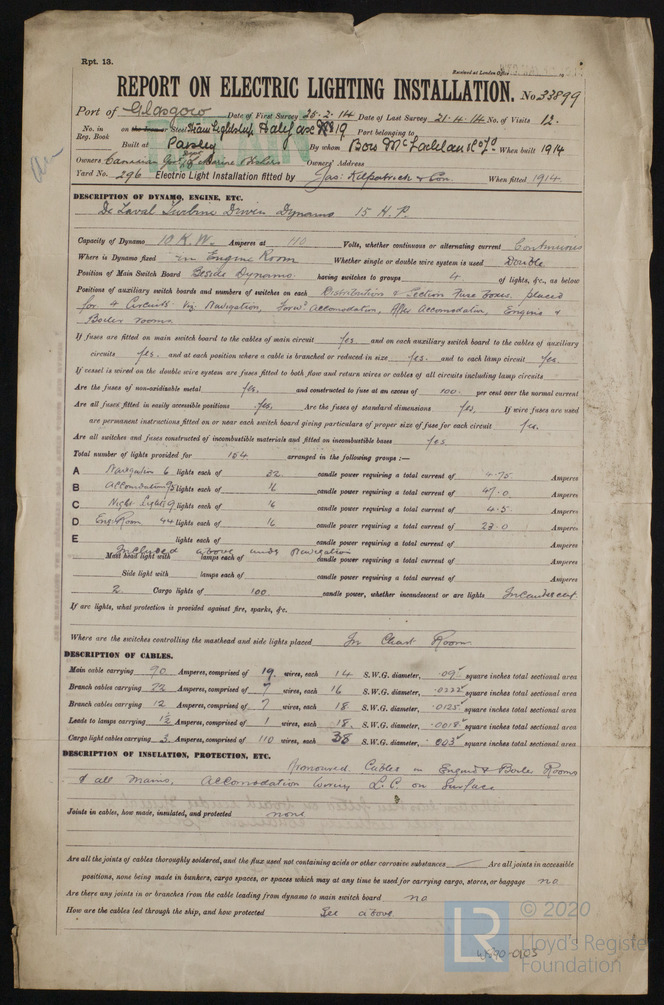 Rpt. 13.
Received at London Office
REPORT ON ELECTRIC LIGHTING INSTALLATION. No 33899
Port of Glasgow Date of First Survey 26.2.14 Date of Last Survey 21.4.14 No. of Visits 12.
No. in Reg. Book on the Iron or Steel Halifax No 19 Port belonging to
Built at Paisley By whom Bow McLachlan & Co Ld When built 1914
Owners Canadian Govt Marine Owners' Address
Yard No. 296 Electric Light Installation fitted by Jas: Kilpatrick & Son. When fitted 1914.
DESCRIPTION OF DYNAMO, ENGINE, ETC.
De Laval Turbine Driven Dynamo 15 H.P.
Capacity of Dynamo 10 K.W. Amperes at 110 Volts, whether continuous or alternating current Continuous
Where is Dynamo fixed in Engine Room Whether single or double wire system is used Double
Position of Main Switch Board Beside Dynamo having switches to groups 4 of lights, &c., as below
Positions of auxiliary switch boards and numbers of switches on each Distribution & Section Fuse Boxes placed
for 4 Circuits viz Navigation, Forwd Accomodation, After Accomodation, Engine &
Boiler rooms
If fuses are fitted on main switch board to the cables of main circuit Yes and on each auxiliary switch board to the cables of auxiliary
circuits Yes. and at each position where a cable is branched or reduced in size Yes. and to each lamp circuit Yes.
If vessel is wired on the double wire system are fuses fitted to both flow and return wires or cables of all circuits including lamp circuits
Are the fuses of non-oxidisable metal Yes. and constructed to fuse at an excess of 100 per cent over the normal current
Are all fuses fitted in easily accessible positions Yes. Are the fuses of standard dimensions Yes. If wire fuses are used
are permanent instructions fitted on or near each switch board giving particulars of proper size of fuse for each circuit Yes.
Are all switches and fuses constructed of incombustible materials and fitted on incombustible bases Yes
Total number of lights provided for 154 arranged in the following groups :—
A Navigation 6 lights each of 32 candle power requiring a total current of 4.75 Amperes
B Accomodation 95 lights each of 16 candle power requiring a total current of 47.0 Amperes
C Night Lights 9 lights each of 16 candle power requiring a total current of 4.5 Amperes
D Eng. Room 44 lights each of 16 candle power requiring a total current of 23.0 Amperes
E lights each of candle power requiring a total current of Amperes
Included above under Navigation
Mast head light with lamps each of candle power requiring a total current of Amperes
Side light with lamps each of candle power requiring a total current of Amperes
2 Cargo lights of 100 candle power, whether incandescent or arc lights Incandescent
If arc lights, what protection is provided against fire, sparks, &c.
Where are the switches controlling the masthead and side lights placed In Chart Room
DESCRIPTION OF CABLES.
Main cable carrying 90 Amperes, comprised of 19 wires, each 14 S.W.G. diameter, .095 square inches total sectional area
Branch cables carrying 22 Amperes, comprised of 7 wires, each 16 S.W.G. diameter, .0222 square inches total sectional area
Branch cables carrying 12 Amperes, comprised of 7 wires, each 18 S.W.G. diameter, .0125 square inches total sectional area
Leads to lamps carrying 1½ Amperes, comprised of 1 wires, each 18 S.W.G. diameter, .0018 square inches total sectional area
Cargo light cables carrying 3 Amperes, comprised of 110 wires, each 38 S.W.G. diameter, .003 square inches total sectional area
DESCRIPTION OF INSULATION, PROTECTION, ETC.
Armoured Cables in Engine & Boiler Rooms
& all Mains, Accomodation L.C. on Surface
Joints in cables, how made, insulated, and protected none
Are all the joints of cables thoroughly soldered, and the flux used not containing acids or other corrosive substances — Are all joints in accessible
positions, none being made in bunkers, cargo spaces, or spaces which may at any time be used for carrying cargo, stores, or baggage no
Are there any joints in or branches from the cable leading from dynamo to main switch board no
How are the cables led through the ship, and how protected See above
LR
© 2020
Lloyd's Register
Foundation